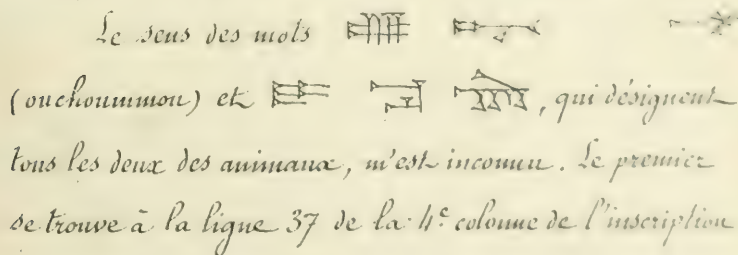 Le sens des mots
(ouchoummou) et , qui désignent
tous les deux des animaux, m'est inconnu. Le premier
se trouve à la ligne 37 de la 4e colonne de l'inscription